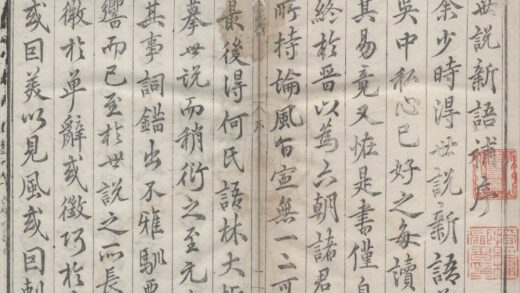 世說新語補序
余少時得世說新語
吳中私心已好之每讀
其易竟又怪是書僅自
終於晉以為六朝諸君
所持論風旨寧無一二可
最後得何氏語林大抵
摹世說而稍衍之至元
其事詞錯出不雅馴要
響而已至於世說之所長
微於單辭或徵巧於
或因美以見風或因刺